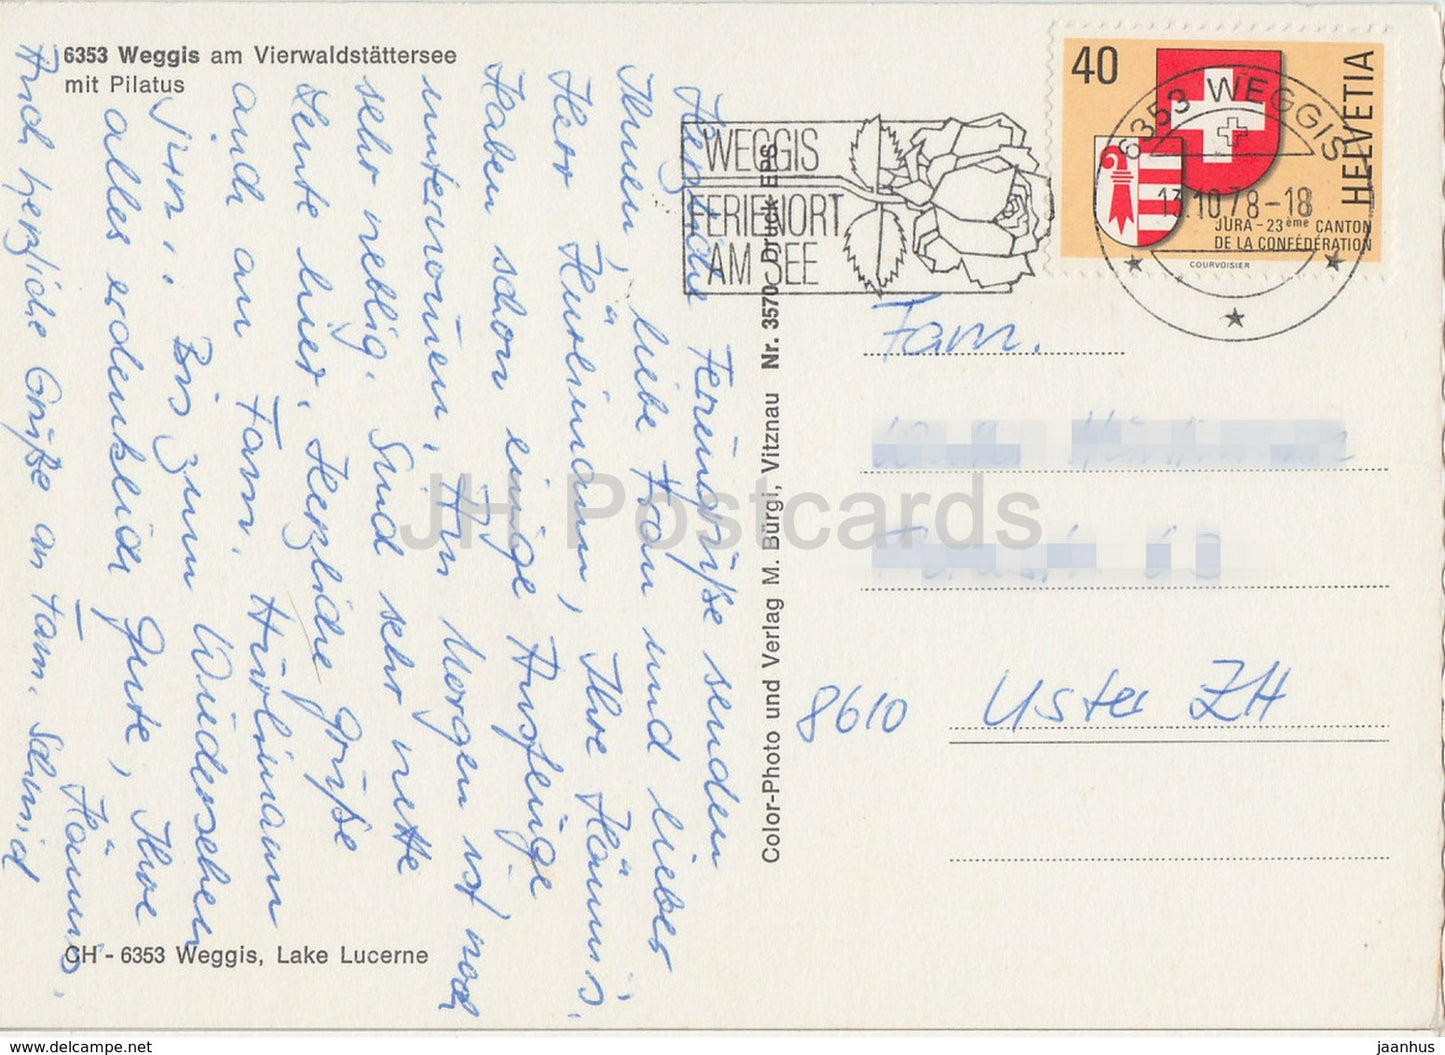 6353 Weggis am Vierwaldstättersee
mit Pilatus
Herzliche Feriengrüße senden
Ihnen, liebe Frau und lieber
Herr Hürlimann, Ihre Hämmis.
Haben schon einige Ausflüge
unternomen. Am Morgen ist noch
sehr neblig. Sind sehr nette
Leute hier. Herzliche Grüße
auch an Fam. Hürlimann
jun.. Bis zum Wiedersehen
alles erdenklich Gute, Ihre
Hämmis.
Auch herzliche Grüße an Fam. Schmid
CH - 6353 Weggis, Lake Lucerne
Color-Photo und Verlag M. Bürgi, Vitznau Nr. 3570 Druck EPS
WEGGIS
FERIENORT
AM SEE
40
HELVETIA
JURA - 23ème CANTON
DE LA CONFÉDÉRATION
COURVOISIER
6353 WEGGIS
13.10.78-18
Fam.
8610 Uster ZH
JH Postcards
www.delcampe.net
jaanhus